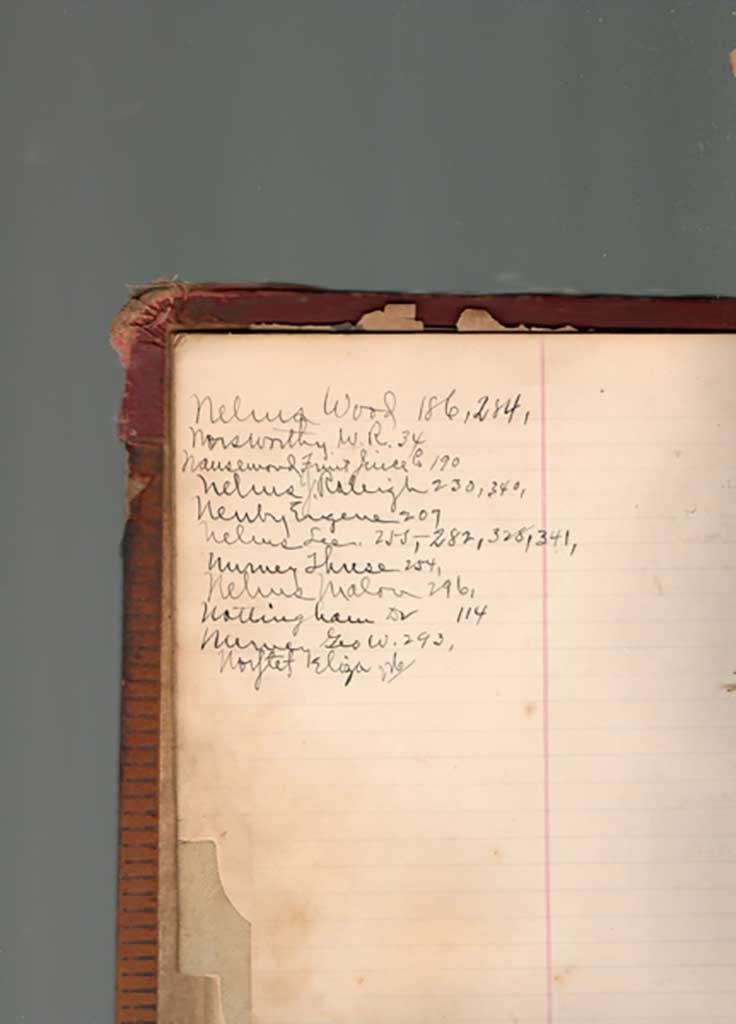 Nelms Wood 186, 284,
Norsworthy W. R. 34
Nansemond Fruit Juice Co 190
Nelms J. Raleigh 230, 340,
Newby Eugene 207
Nelms Lee. 255, 282, 328, 341,
Nurney 254,
Nelms 296,
Nottingham Dr 114
Nurney Geo W. 293,
Eliza